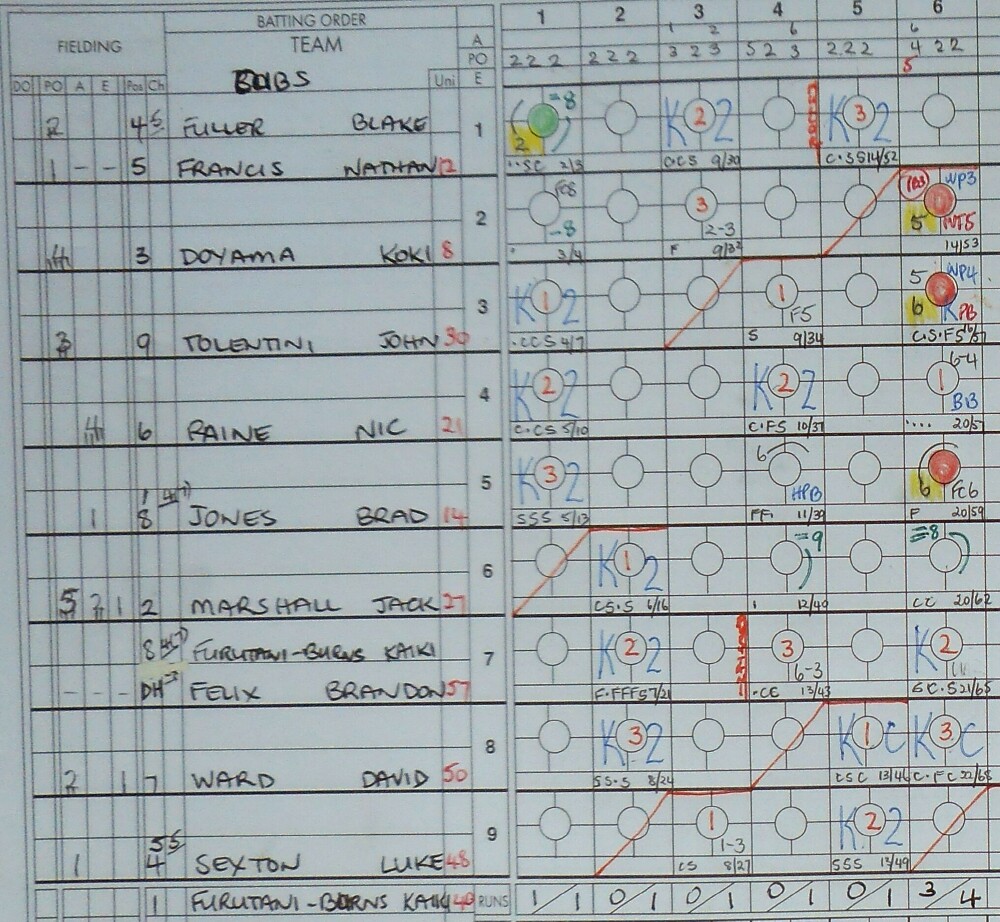 BATTING ORDER
FIELDING
TEAM
BUBS
DO PO A E Pos Ch Uni
A PO E
1 2 3 4 5 6
1 2 6 6
2 2 2 2 2 2 3 2 3 5 2 3 2 2 2 4 2 2
5
2 4 5 FULLER BLAKE
1 - - 5 FRANCIS NATHAN 12
1
=8
2
K 2 2
K 3 2
··SC 2/3
CCS 9/30
C·SS 14/52
2
3 DOYAMA KOKI 8
-8
3/4
3
2-3
F 9/32
WP3
5
14/53
3
3 9 TOLENTINI JOHN 30
K 1 2
·CCS 4/7
1
F5
S 9/34
5 WP4
6 K PB
4
6 RAINE NIC 21
K 2 2
C·CS 5/10
K 2 2
C·FS 10/37
6-4
1
BB
···· 20/57
5
1
1 8 JONES BRAD 14
K 3 2
SSS 5/13
6
HPB
11/39
6 FC6
F 20/59
6
5 2 1 2 MARSHALL JACK 27
K 1 2
CS·S 6/16
=9
12/40
=8
CC 20/62
7
8 FURUTANI-BURNS KAIKI
- - - DH FELIX BRANDON 57
K 2 2
F·FFFS 7/21
3
6-3
·CC 13/43
K 2
21/65
8
2 1 7 WARD DAVID 50
K 3 2
SS·S 8/24
K 1 C
CSC 13/46
K 3 C
C·FC 22/68
9
1 4 SEXTON LUKE 48
1
1-3
CS 8/27
K 2 2
SSS 13/49
1 FURUTANI-BURNS KAIKI 40 RUNS 1/1 0/1 0/1 0/1 0/1 3/4